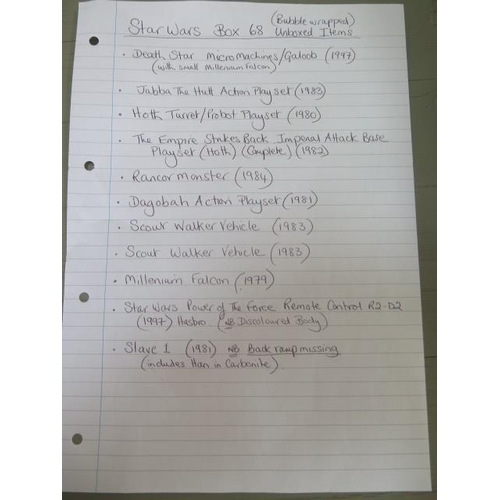 (Bubble wrapped)
Star Wars Box 68 Unboxed Items
· Death Star Micro Machines/Galoob (1997)
(with small Millenium Falcon)
· Jabba The Hutt Action Playset (1983)
· Hoth Turret/Probot Playset (1980)
· The Empire Strikes Back Imperial Attack Base
Playset (Hoth) (Complete) (1982)
· Rancor Monster (1984)
· Dagobah Action Playset (1981)
· Scout Walker Vehicle (1983)
· Scout Walker Vehicle (1983)
· Millenium Falcon (1979)
· Star Wars Power of The Force Remote Control R2-D2
(1997) Hasbro (NB Discoloured Body)
· Slave 1 (1981) NB Back ramp missing
(includes Han in Carbonite)